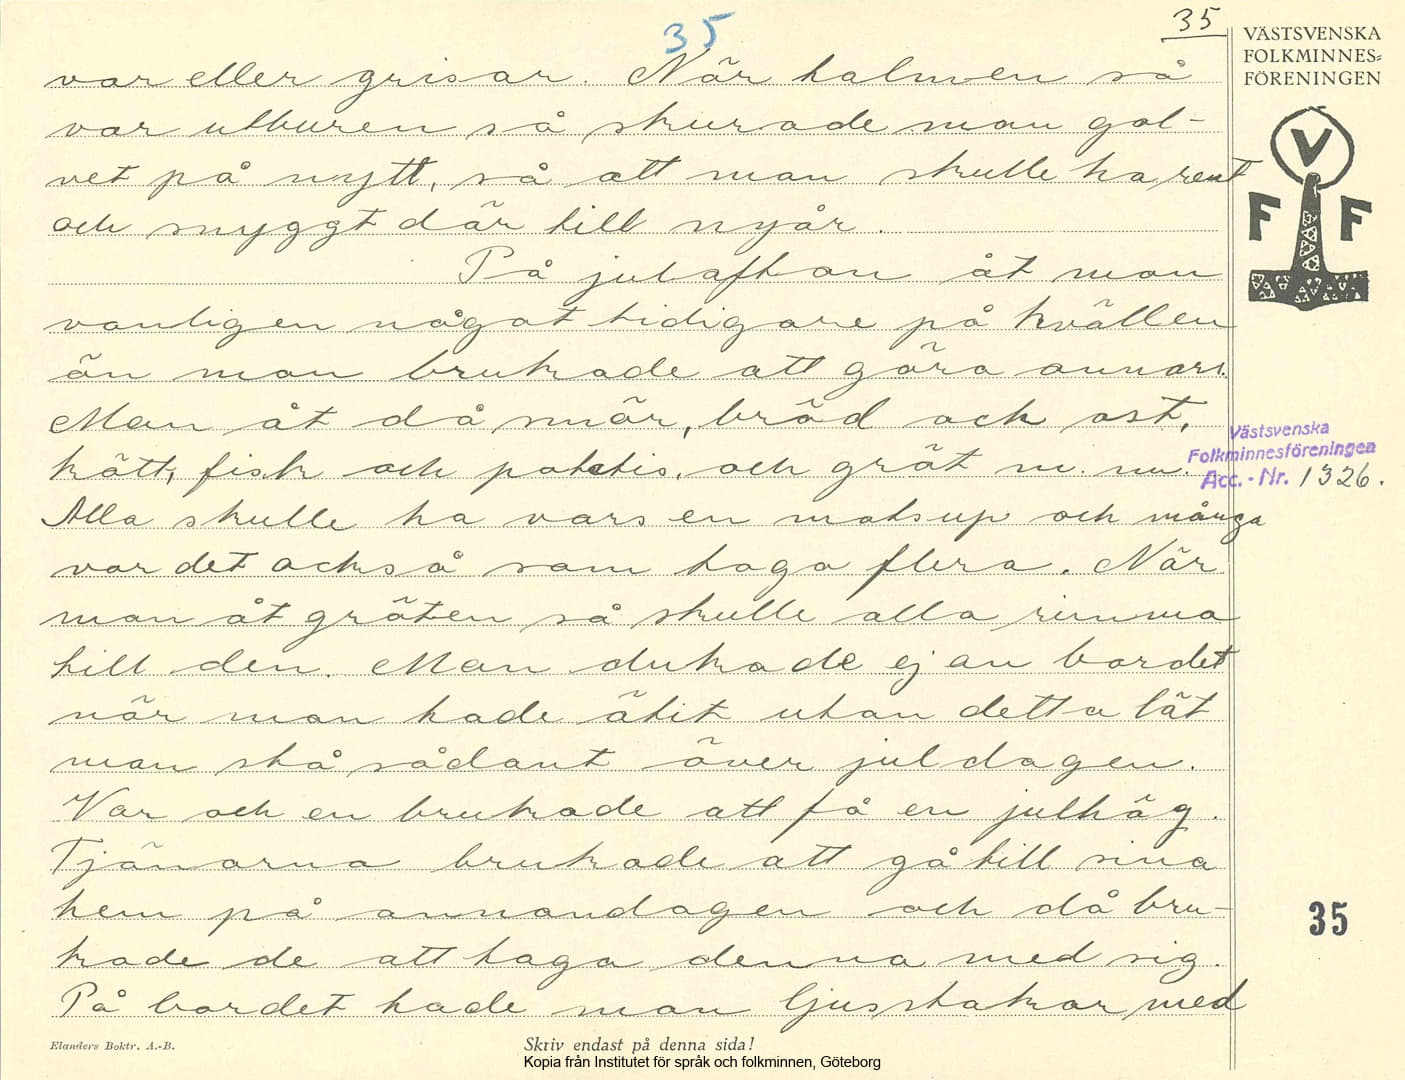 35
35
VÄSTSVENSKA
FOLKMINNES=
FÖRENINGEN
V
F F
var eller grisar. När halmen så
var utburen så skurade man gol-
vet på nytt, så att man skulle ha rent
och snyggt där till nyår.
På julafton åt man
vanligen något tidigare på kvällen
än man brukade att göra annars.
Man åt då smör, bröd och ost,
kött, fisk och potatis, och gröt m. m.
Västsvenska
Folkminnesföreningen
Acc.-Nr. 1326.
Alla skulle ha vars en matsup och många
var det också som togo flera. När
man åt gröten så skulle alla rimma
till den. Man dukade ej av bordet
när man hade ätit utan detta lät
man stå sådant över juldagen.
Var och en brukade att få en julhög.
Tjänarna brukade att gå till sina
hem på annandagen och då bru-
kade de att taga denna med sig.
35
På bordet hade man ljusstakar med
Elanders Boktr. A.-B.
Skriv endast på denna sida!
Kopia från Institutet för språk och folkminnen, Göteborg